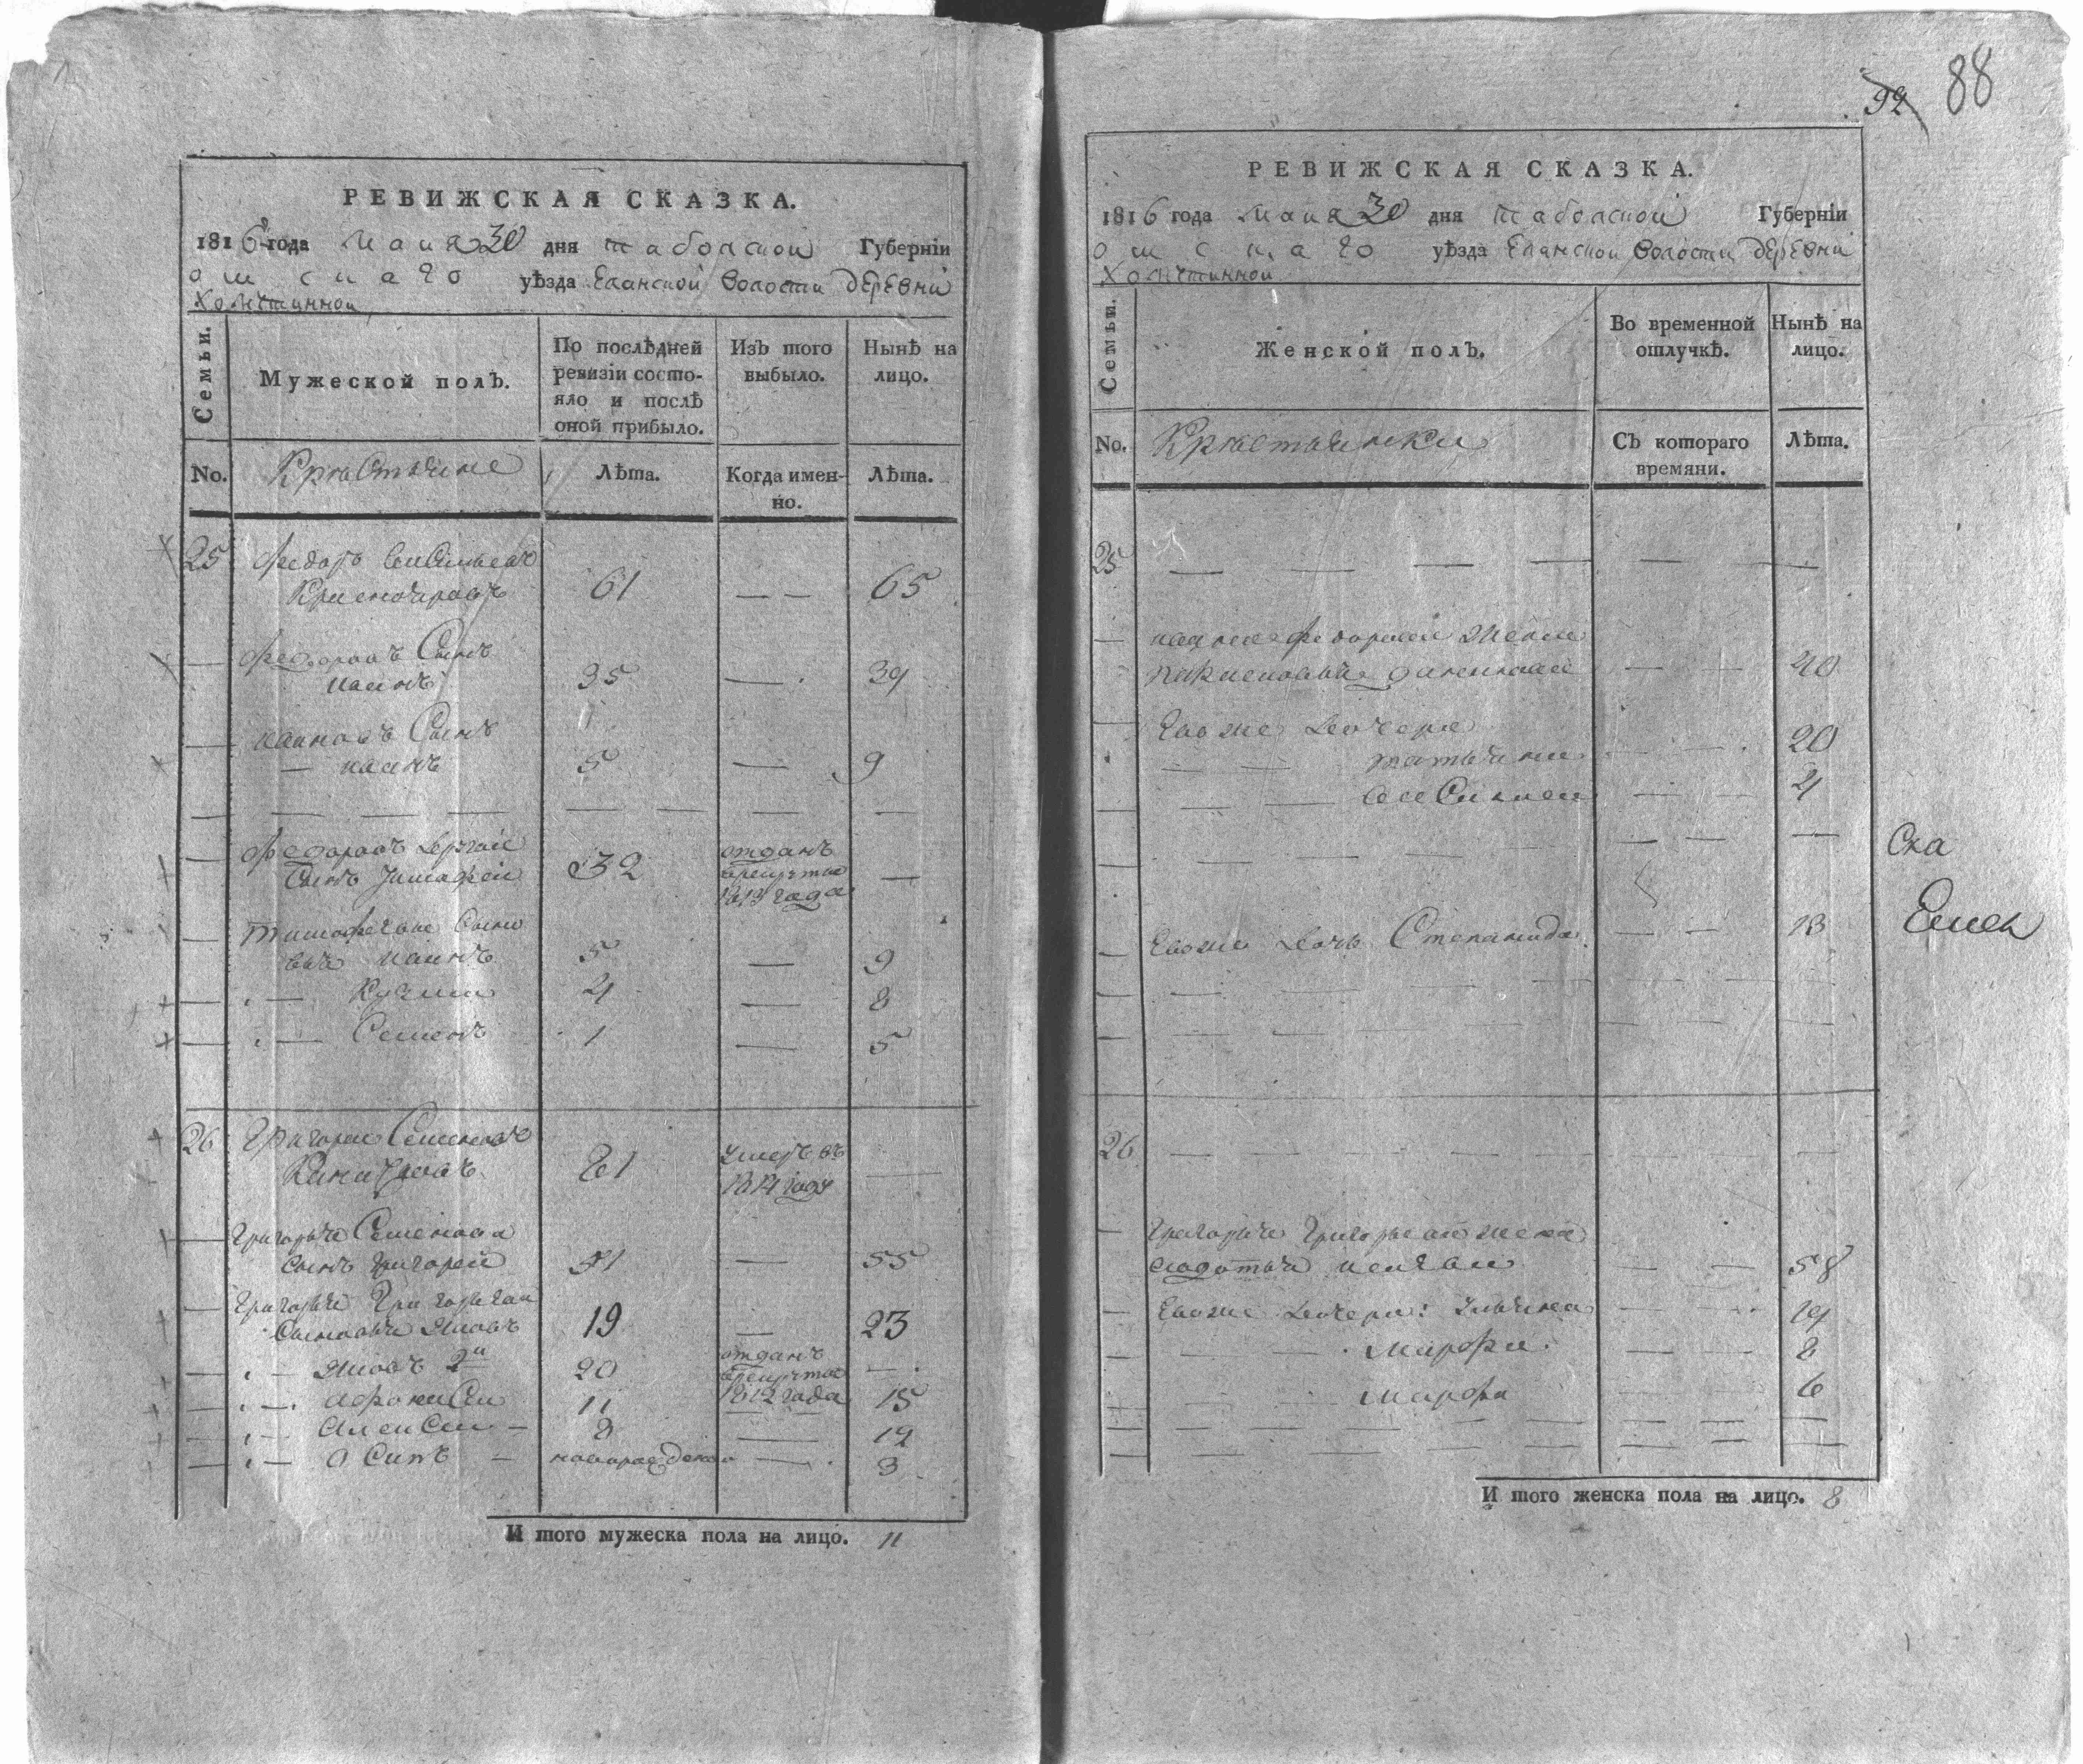 92 88
РЕВИЖСКАЯ СКАЗКА.
1816 года Маия 30 дня табольской Губерніи
омскаго уѣзда Еланской волости деревни
Семьи.
Мужеской полъ.
По послѣдней ревизіи состо-
яло и послѣ
оной прибыло.
Изъ того
выбыло.
Нынѣ на
лицо.
No.
Крестьяне
Лѣта.
Когда имен-
но.
Лѣта.
25 Федоръ
61 — — 65
— Федоровъ Сынъ
иванъ 35 — 39
— ивановъ Сынъ
— иванъ 5 — 9
— — — — — — — — —
— Федоровъ другой
Сынъ тимофей 32 отданъ
врекруты
1813 года —
— тимофеевы Сыно
вья иванъ 5 — 9
— — Кузма 4 — 8
— — Семенъ 1 — 5
26 Григорей Семеновъ
81 умеръ въ
1814 году —
— григорья Семенова
Сынъ григорей 51 — 55
— Григорья Григорьева
Сыновья Яковъ 19 — 23
— — Яковъ 2й 20 отданъ
врекруты
1812 года —
— — афонаСей 11 — 15
— — АлекСей — 8 — 12
— — оСипъ — новорожденой — 3
И того мужеска пола на лицо. 11
РЕВИЖСКАЯ СКАЗКА.
1816 года Маия 30 дня табольской Губерніи
омскаго уѣзда Еланской волости деревни
Семьи.
Женской полъ.
Во временной
отлучкѣ.
Нынѣ на
лицо.
No.
Крестьянки
Съ котораго
времяни.
Лѣта.
25 — — — — — —
— ивана Федорова Жена
— — 40
— Евоже дочери
татьяна — — 20
— — — — 4
— — — — — — —
— Евоже дочь Степанида — — 13
— — — — — — — —
— — — — — — — —
26 — — — — — — — —
— Григорья Григорьева жена
— — 58
— Евоже дочери: Ульяна — — 19
— — — Марфа — — 8
— — — Марфа — — 6
— — — — — — — —
— — — — — — — —
И того женска пола на лицо. 8
Ска